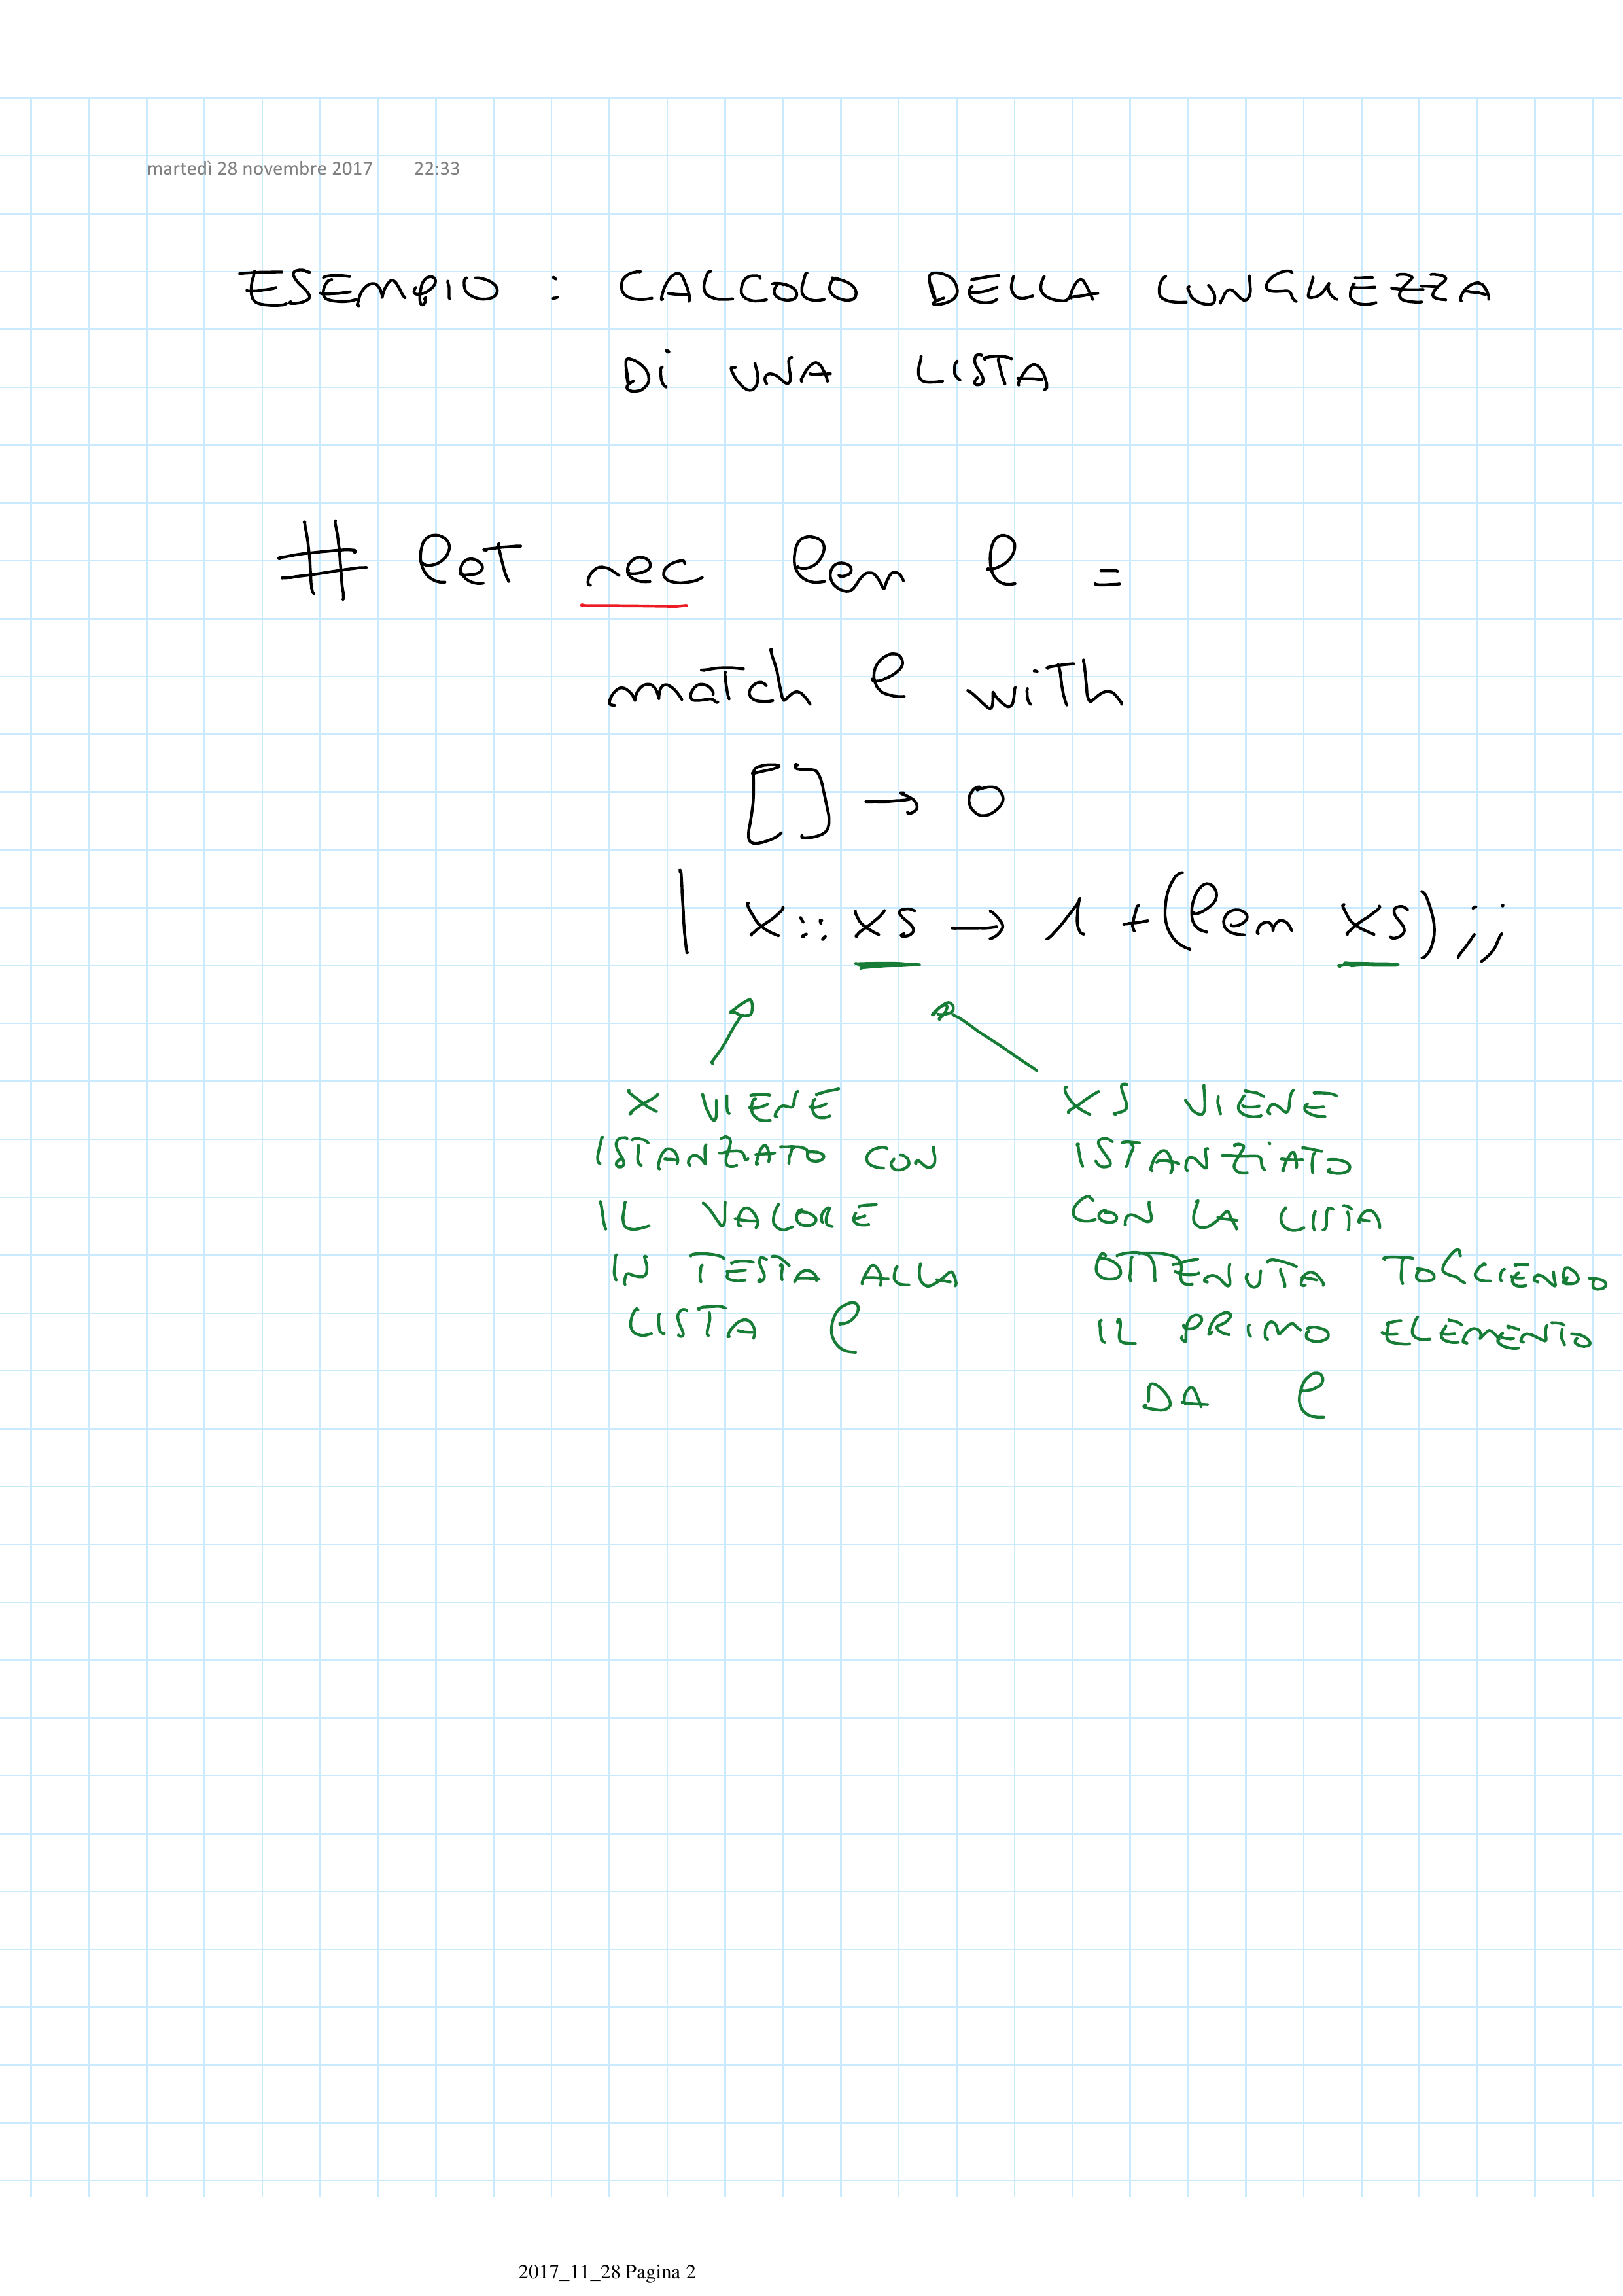 martedì 28 novembre 2017 22:33
ESEMPIO : CALCOLO DELLA LUNGHEZZA
Di UNA LISTA
# let rec len l =
match l with
[] → 0
| x::xs → 1 + (len xs) ;;
X VIENE
ISTANZATO CON
IL VALORE
IN TESTA ALLA
LISTA l
XS VIENE
ISTANZiATO
CON LA LISTA
OTTENUTA TOGLIENDO
IL PRIMO ELEMENTO
DA l
2017_11_28 Pagina 2